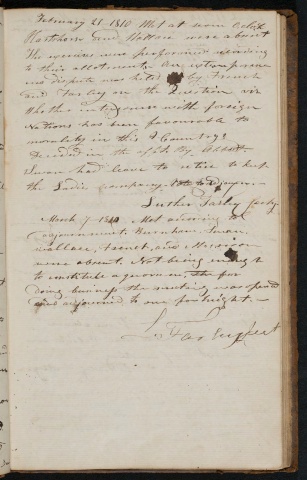 February 21. 1810 Met at seven Oclock
Hawthorn and Wallace were absent
The exercises were performed according
to their allotments. An extempore
ous dispute was held by French
and Farley on the Question viz
Whether intercourse with foreign
Nations has been favourable to
morality in this Country?
Decided in the affir By
Swan had leave to retire to keep
the Ladies company. Voted to adjourn. —
Luther Farley Secty
March 7 1810 Met according to
adjournment. Burnham, Swan,
wallace, and Morrison
were absent. Not being enough
to constitute a quorum, the for
doing business the meeting was
adjourned to one fortnight. —
L. Farley Secret